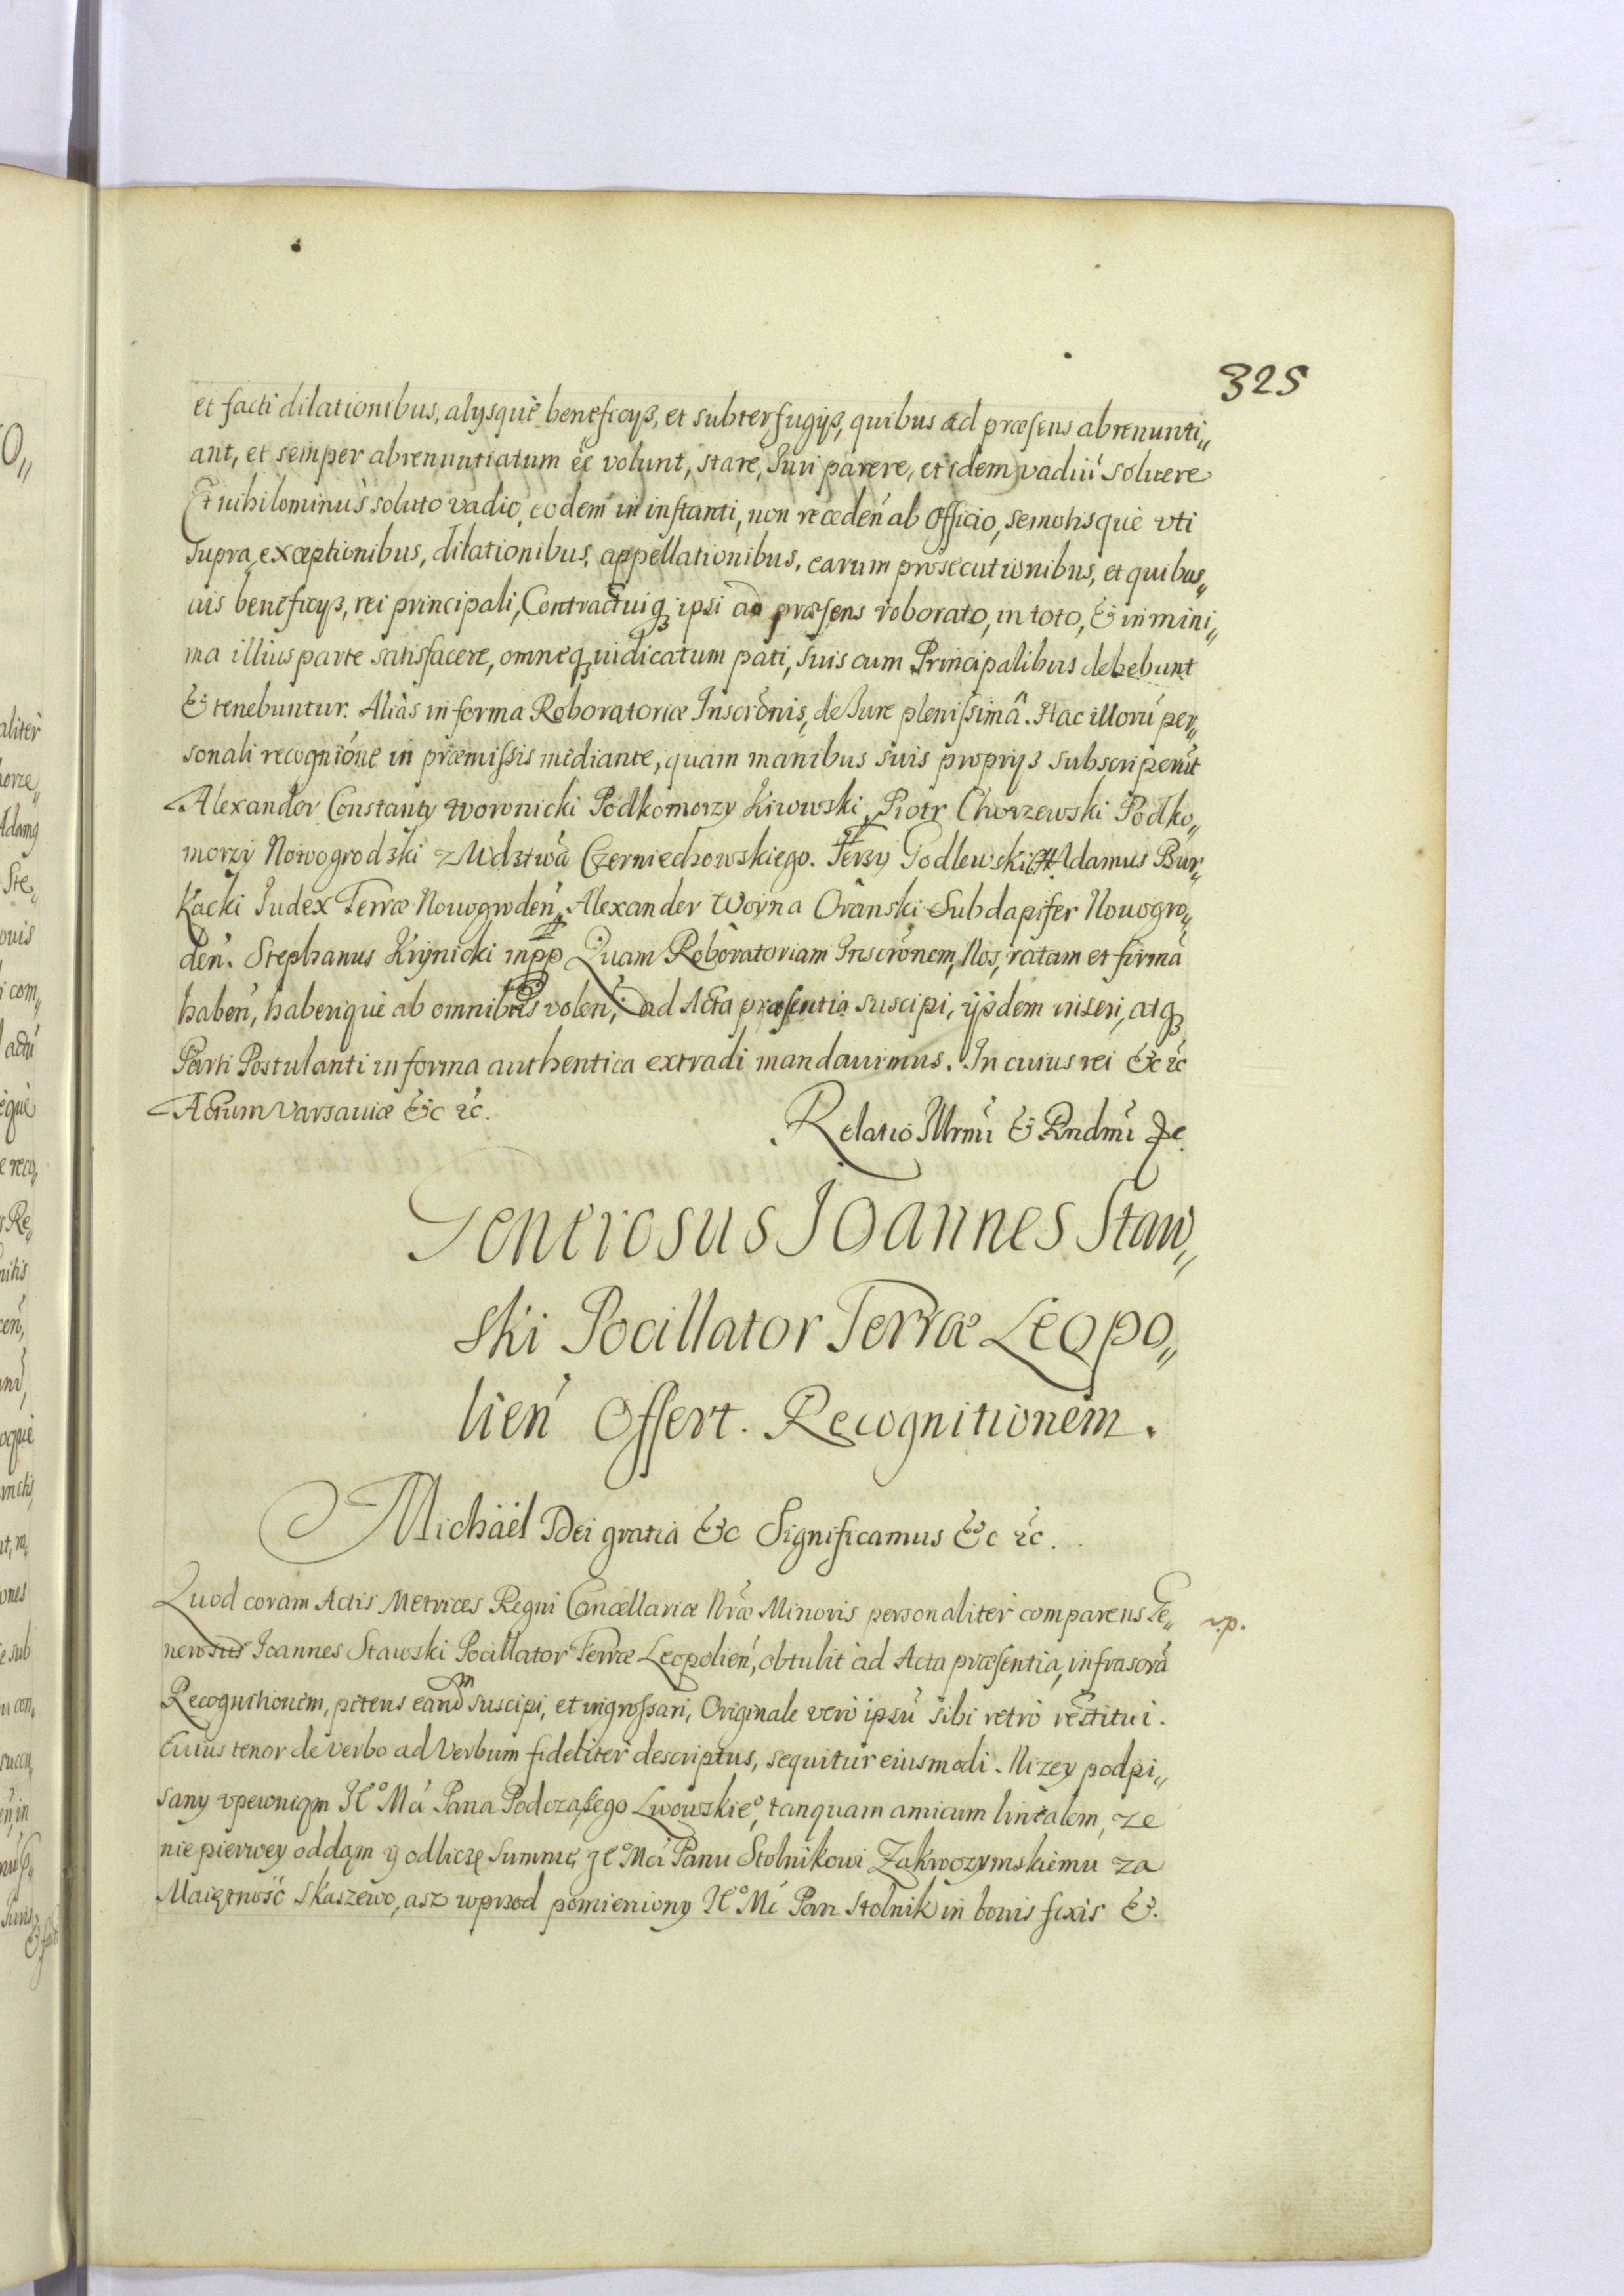 325
et facti dilationibus, alysquè beneficyß, et subterfugyß, quibus ad præsens abrenunti„
ant, et semper abrenuntiatum eē volunt, stare, Juri parere, et idem vadiū soluere
Et nihilominus soluto vadio, eodem in instanti, non receden̄ ab Officio, semotisquè vti
supra, exceptionibus, dilationibus, appellationibus, earum prosecutionibus, et quibus„
uis beneficyß, rei principali, Contractuiq; ipsi ad præsens roborato, in toto, & in mini„
ma illius parte satisfacere, omneq; iudicatum pati, suis cum Principalibus debebunt
& tenebuntur. Aliàs in forma Roboratoriæ Inscrōnis, de Jure plenissimâ. Hac illorū per„
sonali recogniōne in præmissis mediante, quam manibus suis proprijs subscripserūt
Alexander Constanty Woronicki Podkomorzy Kiiowski, Piotr Chorzewski Podko„
morzy Nowogrodzki z Wdztwà Czerniechowskiego. Jerzy Godlewski Adamus Bur„
kacki Judex Terræ Nouogroden̄, Alexander Woyna Oranski Subdapifer Nouogro„
den̄. Stephanus Krynicki mpp Quam Roboratoriam Inscrōnem, Nos, ratam et firmā
haben̄, haberiquè ab omnibus volen̄, ad Acta præsentia suscipi, ijsdem inseri, atq;
Parti Postulanti in forma authentica extradi mandauimus. In cuius rei &c ec
Actum Varsauiæ &c ec.
Relatio Illrmī & Rndmī &c.
Generosus Joannes Staw„
ski Pocillator Terræ Leopo„
lien̄ Offert. Recognitionem.
Michäel Dei gratia &c Significamus &c ec.
Quod coram Actis Metrices Regni Cancellariæ Nræ Minoris personaliter comparens Ge„
r.p.
nerosus Joannes Stawski Pocillator Terræ Leopolien̄, obtulit ad Acta præsentia, infrascrā
Recognitionem, petens eandm suscipi, et ingrossari, Originale verò ipsū sibi retrò restitui.
Cuius tenor de verbo ad Verbum fideliter descriptus, sequitur eiusmodi. Nizey podpi„
sany vpewniąm Ie° Mci Pana Podczaßego Lwowskie°, tanquam amicum lintalem, ze
nie pierwey oddąm y odliczę Summę Ie° Mci Panu Stolnikowi Zakroczymskiemu za
Maiętność Skaszewo, asz wprzod pomieniony Ie° Mć Pan Stolnik in bonis fixis &.